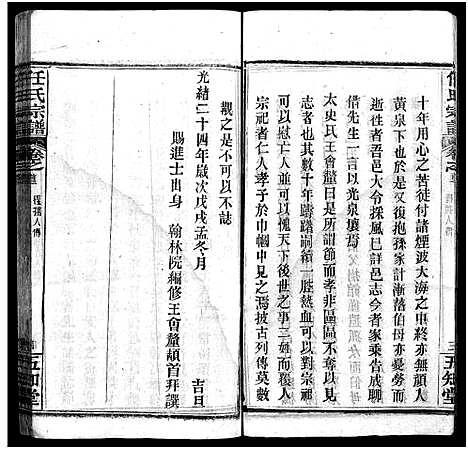 十年用心之苦徒付諸煙波大海之中終亦無顏人
黃泉下也於是又復抱孫家計漸落伯母亦憂勞而
逝往者吾邑大令採風已詳邑志今者家乘告成聊
借先生一言以光泉壤焉
太史氏王會釐曰是所謂節而孝非區區不奪以貞
志者也其數十年躊躇嗣續一腔熱血可以對宗祀
可以慰亡人並可以愧天下後世之事三姓而覆人
宗祀者仁人孝子於巾幗中見之焉披古列傳莫數
覯之是不可以不誌
光緒二十四年歲次戊戌孟冬月
賜進士出身 翰林院編修王會釐頓首拜撰
吉旦
任氏宗譜
卷之
程孺人傳
五知堂
任氏宗譜
卷之
三
五知堂